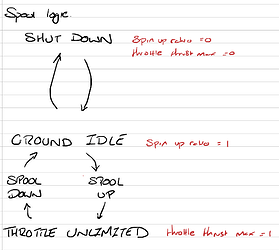 Spool logic.
SHUT DOWN
Spin up ratio = 0
throttle thrust max = 0
GROUND IDLE
Spin up ratio = 1
SPOOL DOWN
SPOOL UP
THROTTLE UNLIMITED
throttle thrust max = 1